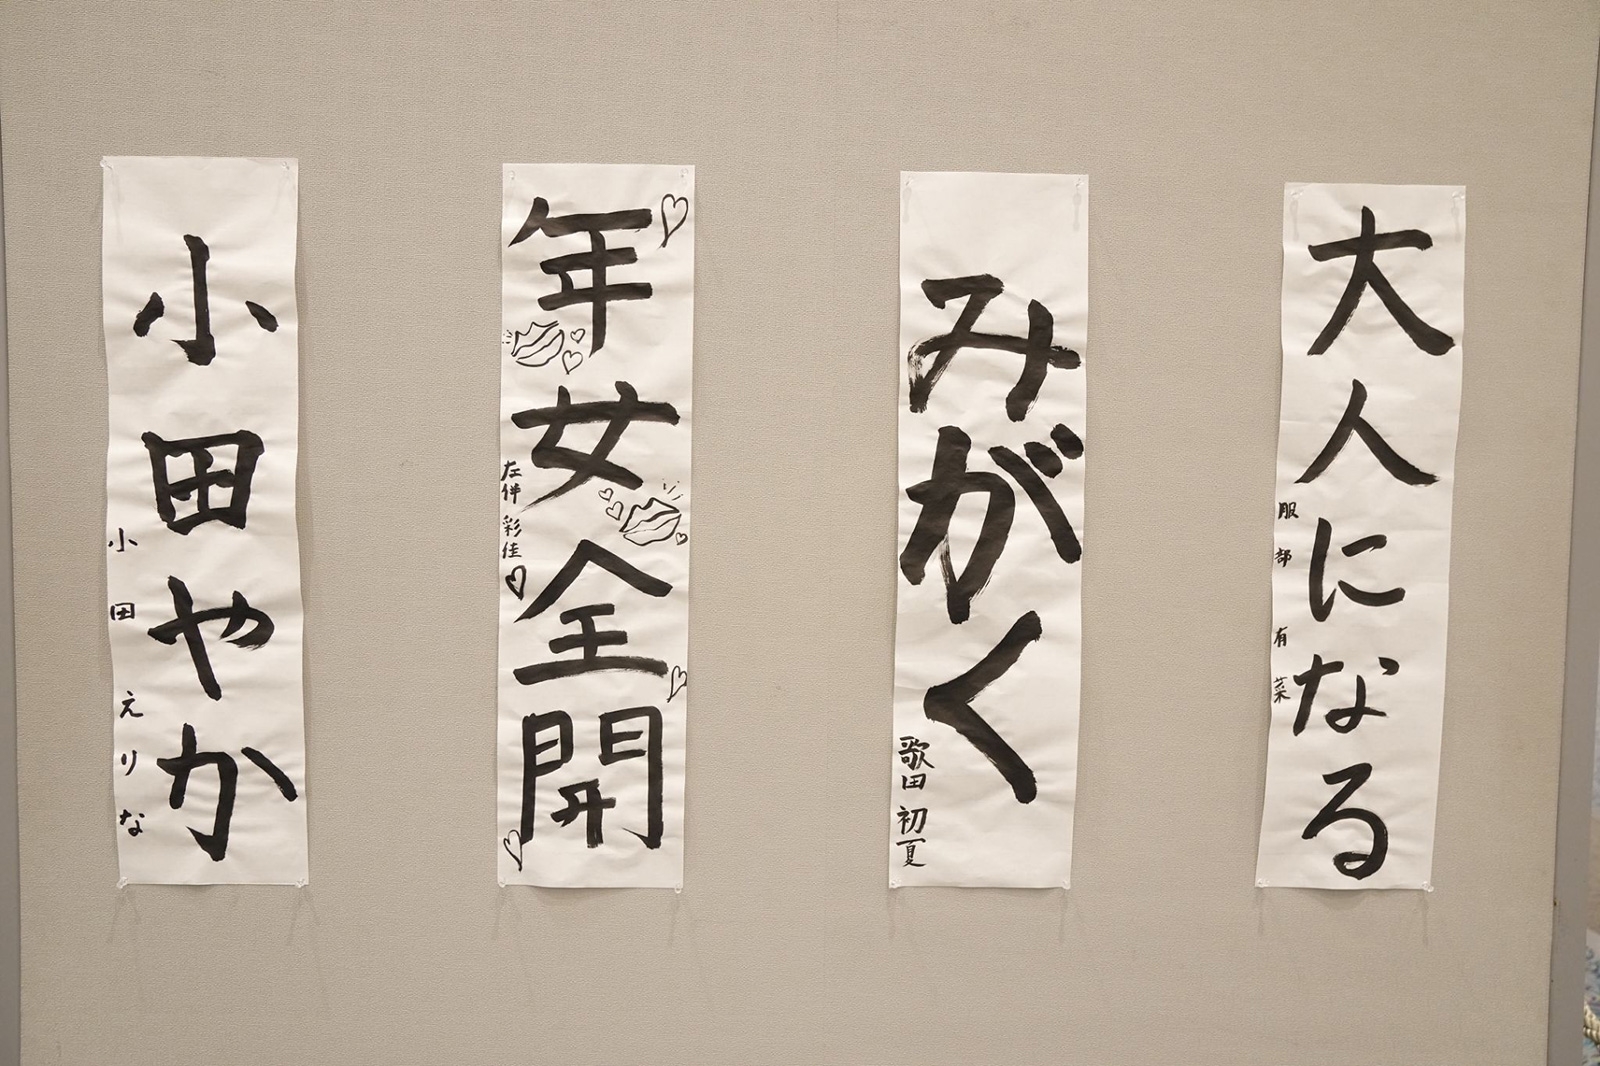 大人になる
服部有菜
みがく
歌田初夏
年女全開
左伴彩佳
小田やか
小田えりな